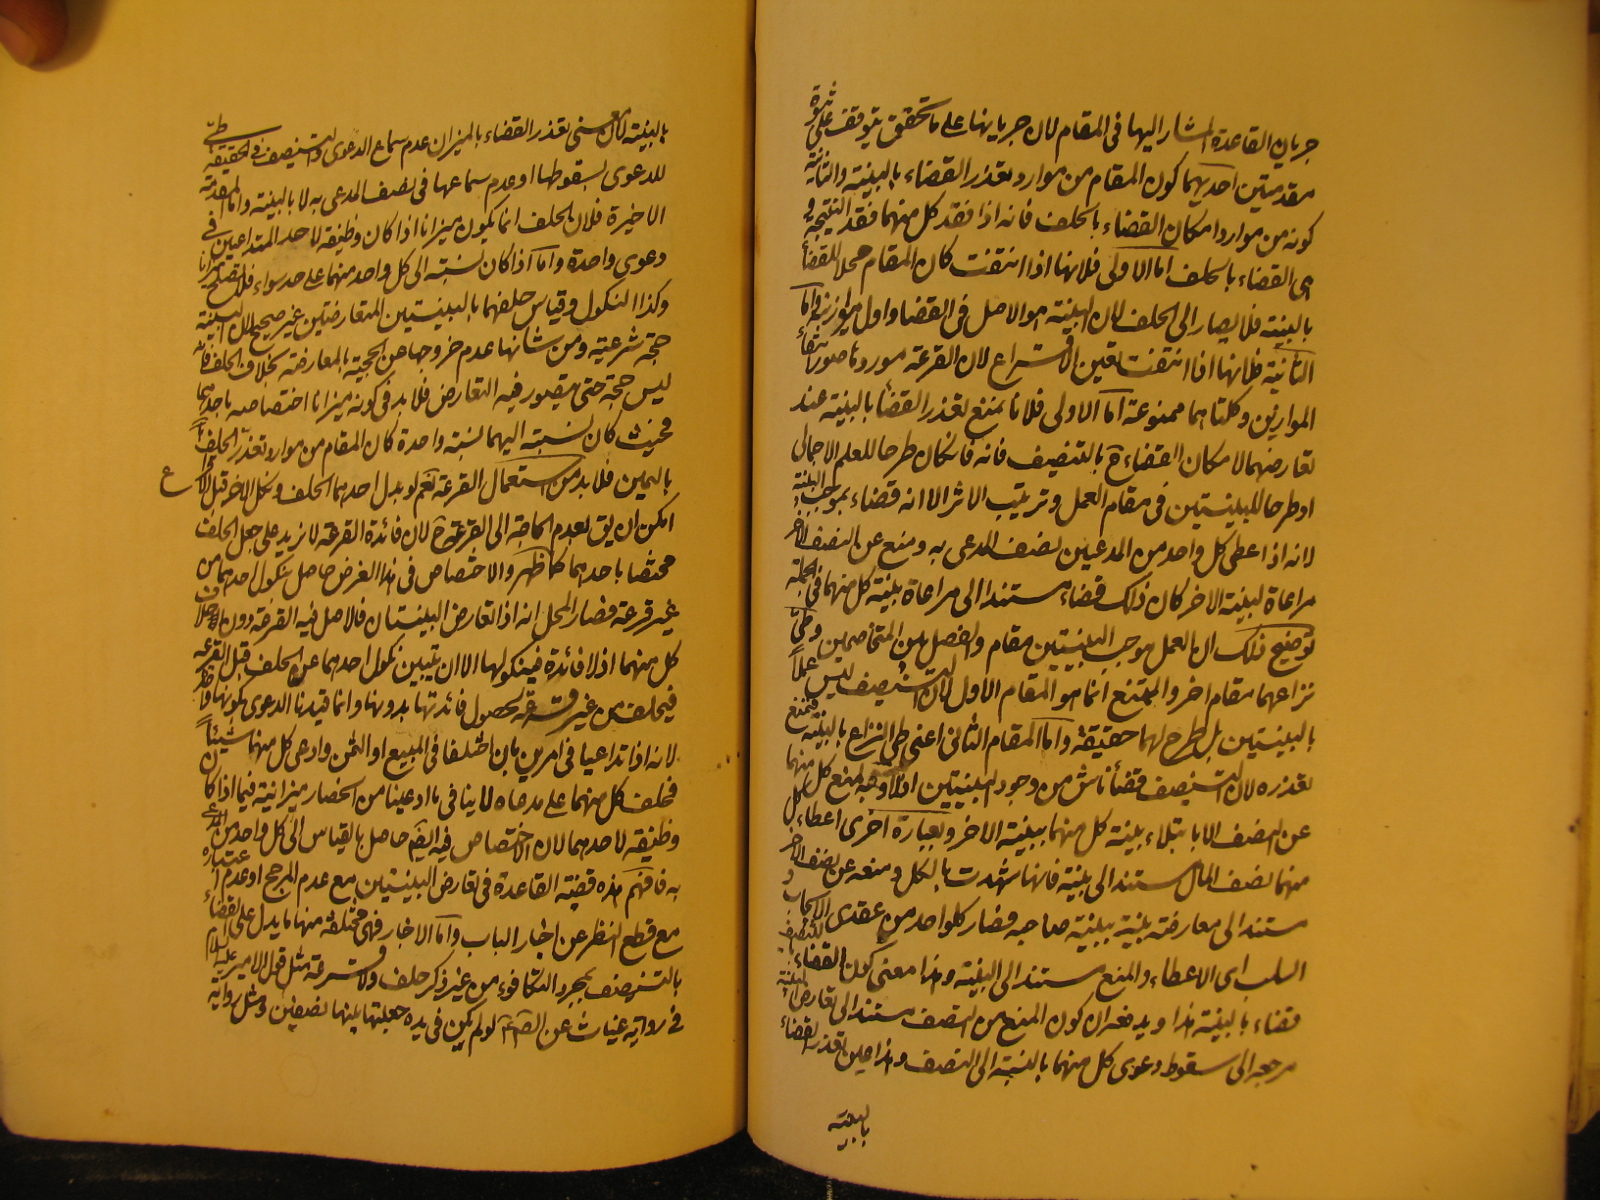 جريان القاعدة المشار اليها في المقام لان جريانها على ما تحقق يتوقف على ثبوت
مقدمتين احديهما كون المقام من موارد تعذر القضاء بالبينة والثانية
كونه من موارد امكان القضاء بالحلف فانه اذا فقد كل منهما فقد النتيجة و
هي القضاء بالحلف اما الاولى فلانها اذا انتفت كان المقام محلا للقضاء
بالبينة فلا يصار الى الحلف لان البينة هو الاصل في القضا واول موازينه واما
الثانية فلانها اذا انتفت تعين الاقتراع لان القرعة موردها صورة انتفاء
الموازين وكلتاهما ممنوعة اما الاولى فلانا نمنع تعذر القضاء بالبينة عند
تعارضهما لامكان القضاء ح بالتنصيف فانه فانكان طرحا للعلم الاجمالى
او طرحا للبينتين في مقام العمل وترتيب الاثر الا انه قضاء بموجب البينة
لانه اذا اعطى كل واحد من المدعيين نصف المدعى به ومنع عن النصف الاخر
مراعاة لبينة الاخر كان ذلك قضاء مستندا الى مراعاة بينة كل منهما في الجملة
توضيح ذلك ان العمل بموجب البينتين مقام والفصل بين المتخاصمين وطى
نزاعهما مقام اخر والممتنع انما هو المقام الاول لان التنصيف ليس عملا
بالبينتين بل طرح لهما حقيقة واما المقام الثانى اعنى طى النزاع بالبينة فنمنع
تعذره لان التنصيف قضاء ناش من وجود البينتين اذ لا وجه لمنع كل منهما
عن النصف الا بابتلاء بينة كل منهما ببينة الاخر وبعبارة اخرى اعطاء كل
منهما نصف المال مستند الى بينة فانها شهدت بالكل ومنعه عن نصف الاخر
مستند الى معارضة بينته ببينة صاحبه فصار كل واحد من عقدى الايجاب و
السلب اى الاعطاء والمنع مستند الى البينة وهذا معنى كون القضاء بالتنصيف
قضاء بالبينة هذا ويدفعه ان كون المنع من النصف مستندا الى تعارض البينة
مرجعه الى سقوط دعوى كل منهما بالنسبة الى النصف وهذا عين تعذر القضاء
بالبينة
بالبينة لان معنى تعذر القضاء بالميزان عدم سماع الدعوى والتنصيف في الحقيقة طى
للدعوى لسقوطها او عدم سماعها في نصف المدعى به لا بالبينة واما المقدمة
الاخيرة فلان الحلف انما يكون ميزانا اذا كان وظيفة لاحد المتداعيين في
دعوى واحدة واما اذا كان نسبته الى كل واحد منهما على حد سواء فلا يصلح ميزانا
وكذا النكول وقياس حلفهما بالبينيتين المتعارضتين غير صحيح لان البينة
حجة شرعية ومن شانها عدم خروجها عن الحجية بالمعارضة بخلاف الحلف فانه
ليس حجة حتى يتصور فيه التعارض فلا بد في كونه ميزانا اختصاصه باحدهما
فحيث كان نسبته اليهما نسبة واحدة كان المقام من موارد تعذر الحلف
باليمين فلا بد من استعمال القرعة نعم لو بذل احدهما الحلف ونكل الاخر قبل الاقراع
امكن ان يق بعدم الحاجة الى القرعة ح لان فائدة القرعة لا تزيد على جعل الحلف
مختصا باحدهما كما ظهر والاختصاص في هذا الغرض حاصل بنكول احدهما من
غير قرعة فصار المحل انه اذا تعارض البينتان فالاصل فيه القرعة دون احلاف
كل منهما اذ لا فائدة في نكولها الا ان يتبين نكول احدهما عن الحلف قبل القرعة
فيحلف من غير قرعة لحصول فائدتها بدونها وانما قيدنا الدعوى بكونها واحدة
لانه اذا تداعيا في امرين بان اختلفا في المبيع او الثمن وادعى كل منهما شيئا
فحلف كل منهما على مدعاه لا ينافى ما ادعينا من انحصار ميزانية فيما اذا كان
وظيفة لاحدهما لان الاختصاص فيه ايضم حاصل بالقياس الى كل واحد من المدعى
به فافهم هذه قضية القاعدة في تعارض البينتين مع عدم المرجح او عدم اعتباره
مع قطع النظر عن اخبار الباب واما الاخبار فهى مختلفة منها ما يدل على القضاء
بالتنصيف بمجرد التكافوء من غير ذكر حلف ولا قرعة مثل قول الامير عليه السلام
في رواية غياث عن الصم لو لم يكن في يده جعلتها بينهما نصفين ومثل رواية